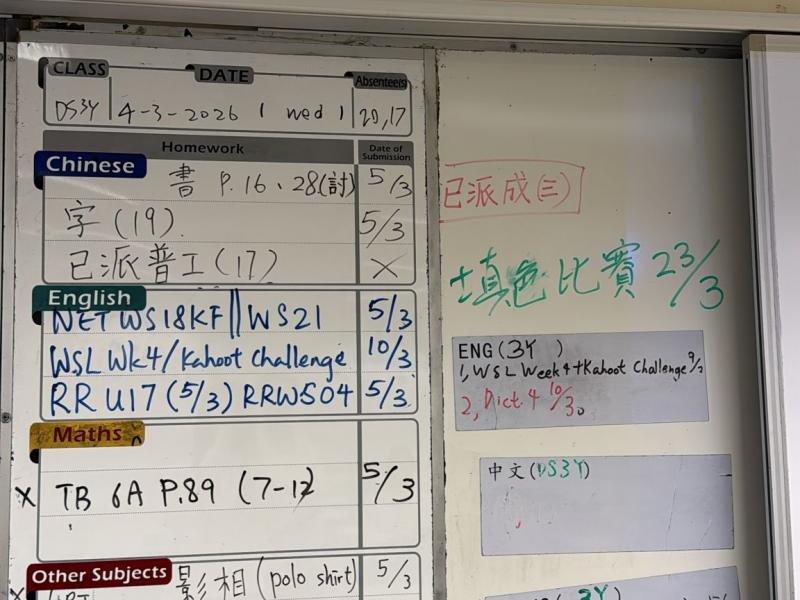 CLASS DATE Absentee(s)
DS3Y 4-3-2026 ( wed ) 20,17
Homework Date of Submission
Chinese 書 P.16、28(討) 5/3
字(19). 5/3
已派普工(17) ×
English
NET WS18KF || WS21 5/3
WSL WK4/Kahoot Challenge 10/3
RR U17 (5/3) RRWS04 5/3
Maths
× TB 6A P.89 (7-12 5/3
Other Subjects 影相(polo shirt) 5/3
已派成(三)
填色比賽 23/3
ENG(3Y )
1, WSL Week 4+Kahoot Challenge 9/2
2, Dict.4 10/3。
中文(DS3Y)